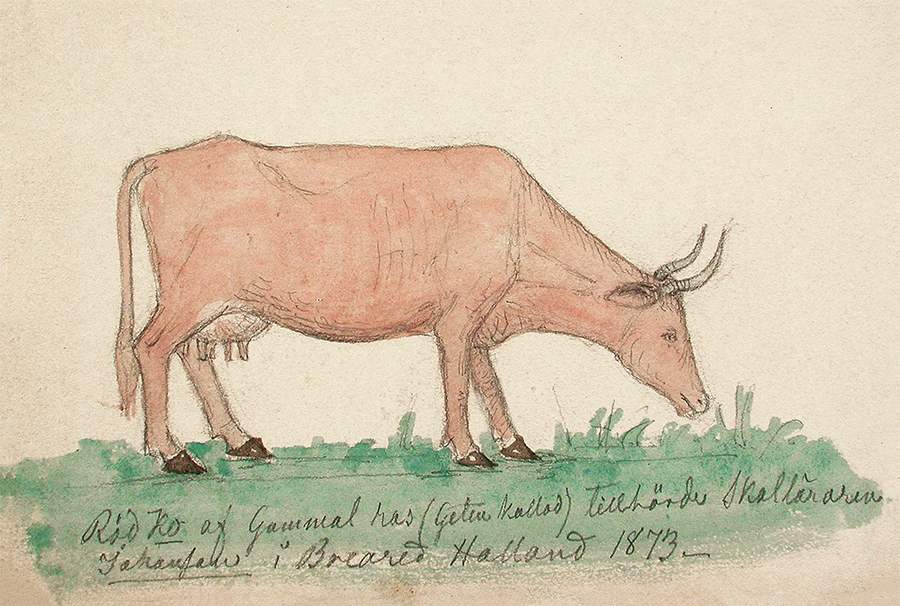 Röd Ko af Gammal ras (Geten kallad) tillhörde Skolläraren
Johansson i Breared Halland 1873.—